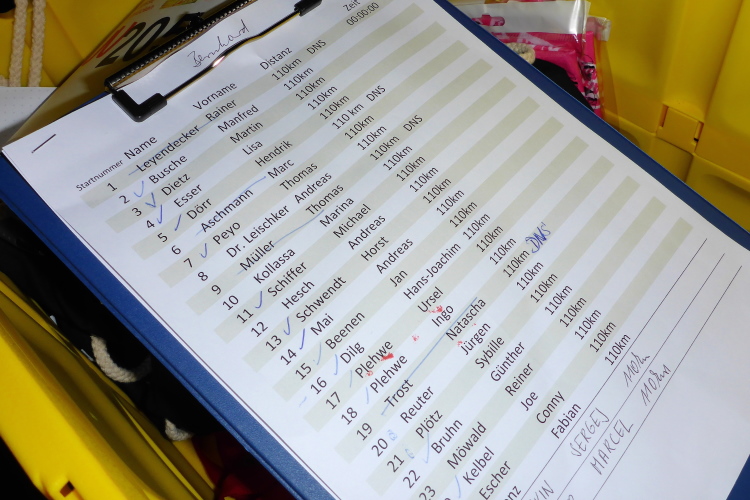 Bernhard
Startnummer Name Vorname Distanz Zeit
00:00:00
1 Leyendecker Rainer 110km DNS
2 Busche Manfred 110km
3 Dietz Martin 110km
4 Esser Lisa 110km
5 Dörr Hendrik 110km
6 Aschmann Marc 110 km DNS
7 Peyo Thomas 110km
8 Dr. Leischker Andreas 110km
9 Müller Thomas 110km DNS
10 Kollassa Marina 110km
11 Schiffer Michael 110km
12 Hesch Andreas 110km
13 Schwendt Horst 110km
14 Mai Andreas 110km
15 Beenen Jan 110km
16 Dilg Hans-Joachim 110km
17 Plehwe Ursel 110km
18 Plehwe Ingo 110km
19 Trost Natascha 110km DNS
20 Reuter Jürgen 110km
21 Plötz Sybille 110km
22 Bruhn Günther 110km
23 Möwald Reiner 110km
Keibel Joe 110km
Escher Conny 110km
Fabian 110km
SERGEJ 110km
MARCEL 110km